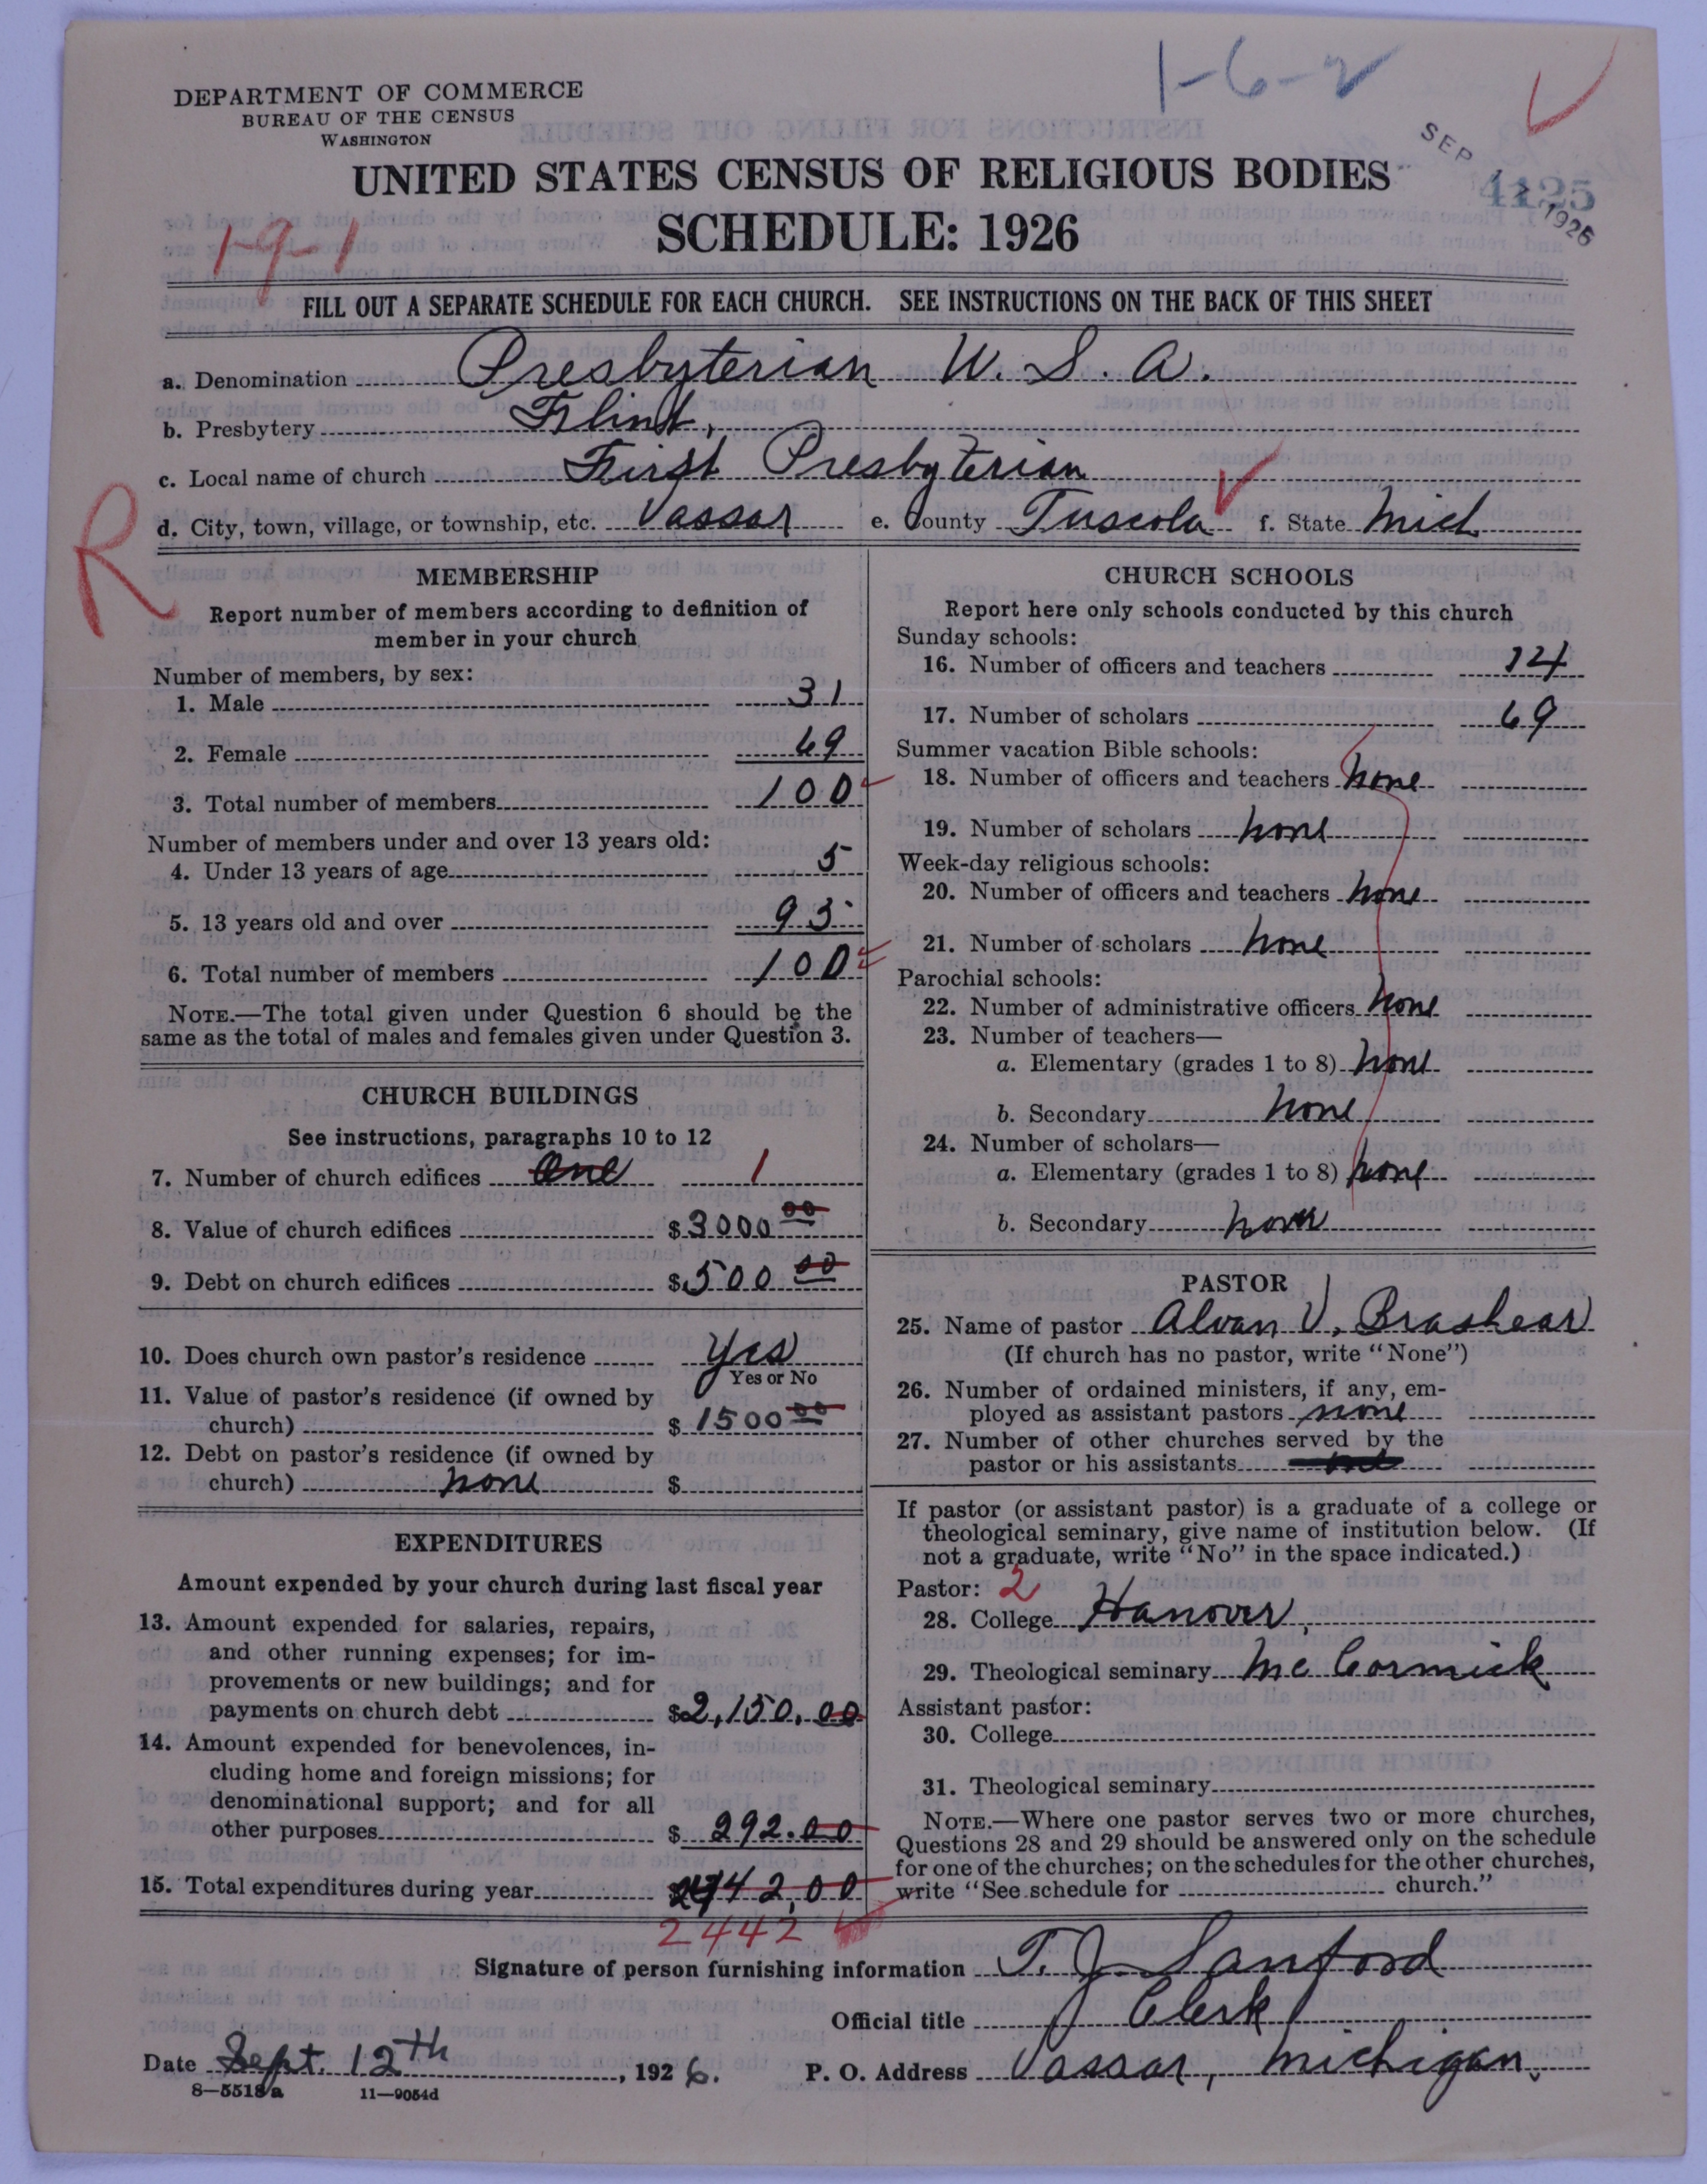 1-6-2
DEPARTMENT OF COMMERCE
BUREAU OF THE CENSUS
WASHINGTON
SEP 1926
4125
UNITED STATES CENSUS OF RELIGIOUS BODIES
SCHEDULE: 1926
1-9-1
FILL OUT A SEPARATE SCHEDULE FOR EACH CHURCH. SEE INSTRUCTIONS ON THE BACK OF THIS SHEET
a. Denomination Presbyterian U. S. A.
b. Presbytery Flint,
c. Local name of church First Presbyterian
R
d. City, town, village, or township, etc. Vassar e. County Tuscola f. State Mich
MEMBERSHIP
Report number of members according to definition of
member in your church
Number of members, by sex:
1. Male 31
2. Female 69
3. Total number of members 100
Number of members under and over 13 years old:
4. Under 13 years of age 5
5. 13 years old and over 95
6. Total number of members 100
NOTE.—The total given under Question 6 should be the
same as the total of males and females given under Question 3.
CHURCH BUILDINGS
See instructions, paragraphs 10 to 12
7. Number of church edifices One 1
8. Value of church edifices $3000 00
9. Debt on church edifices $500 00
10. Does church own pastor's residence Yes
Yes or No
11. Value of pastor's residence (if owned by
church) $1500 00
12. Debt on pastor's residence (if owned by
church) none $
EXPENDITURES
Amount expended by your church during last fiscal year
13. Amount expended for salaries, repairs,
and other running expenses; for im-
provements or new buildings; and for
payments on church debt $2,150.00
14. Amount expended for benevolences, in-
cluding home and foreign missions; for
denominational support; and for all
other purposes $292.00
15. Total expenditures during year $2442.00
2442
CHURCH SCHOOLS
Report here only schools conducted by this church
Sunday schools:
16. Number of officers and teachers 14
17. Number of scholars 69
Summer vacation Bible schools:
18. Number of officers and teachers none
19. Number of scholars none
Week-day religious schools:
20. Number of officers and teachers none
21. Number of scholars none
Parochial schools:
22. Number of administrative officers none
23. Number of teachers—
a. Elementary (grades 1 to 8) none
b. Secondary none
24. Number of scholars—
a. Elementary (grades 1 to 8) none
b. Secondary none
PASTOR
25. Name of pastor Alvan V. Brashear
(If church has no pastor, write "None")
26. Number of ordained ministers, if any, em-
ployed as assistant pastors none
27. Number of other churches served by the
pastor or his assistants
If pastor (or assistant pastor) is a graduate of a college or
theological seminary, give name of institution below. (If
not a graduate, write "No" in the space indicated.)
Pastor: 2
28. College Hanover,
29. Theological seminary McCormick
Assistant pastor:
30. College
31. Theological seminary
NOTE.—Where one pastor serves two or more churches,
Questions 28 and 29 should be answered only on the schedule
for one of the churches; on the schedules for the other churches,
write "See schedule for church."
Signature of person furnishing information T. J. Sanford
Official title Clerk
Date Sept. 12th, 1926. P. O. Address Vassar, Michigan.
8—5518a 11—9054d